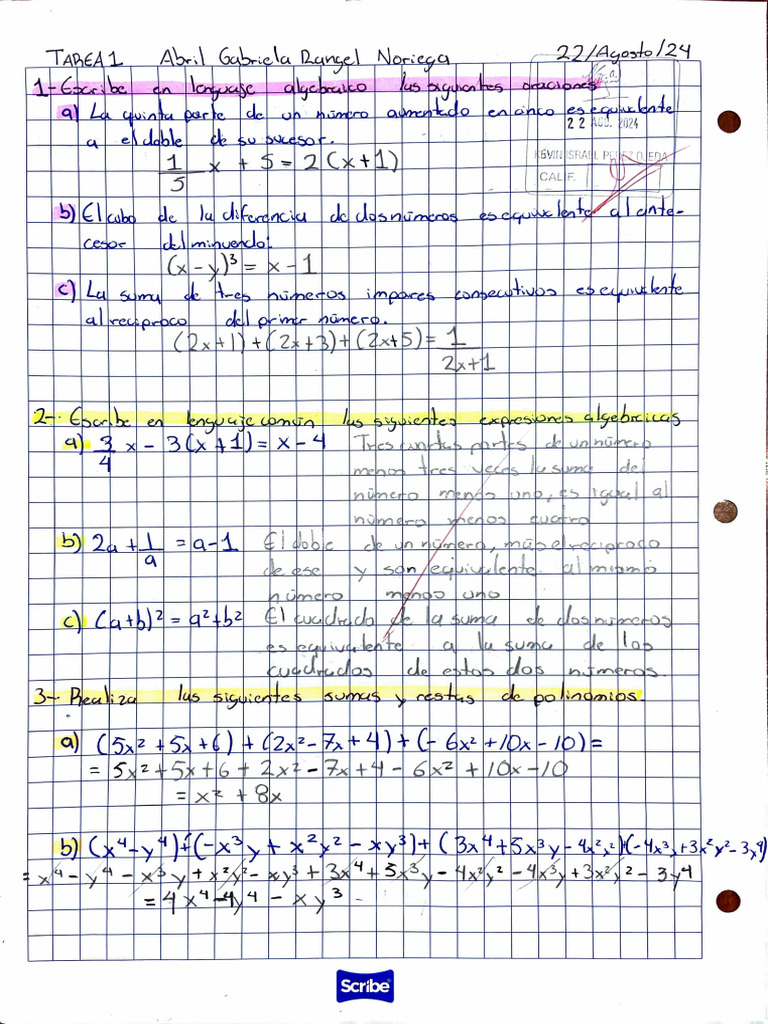 TAREA 1 Abril Gabriela Rangel Noriega 22/Agosto/24
1- Escribe en lenguaje algebraico las siguientes oraciones
a) La quinta parte de un número aumentado en cinco es equivalente
22 AGO. 2024
a el doble de su sucesor.
1/5 x + 5 = 2(x+1)
KEVIN ISRAEL PEREZ OJEDA
CALIF.
b) El cubo de la diferencia de dos números es equivalente al ante-
cesor del minuendo:
(x-y)³ = x - 1
c) La suma de tres números impares consecutivos es equivalente
al reciproco del primer número.
(2x+1)+(2x+3)+(2x+5) = 1/2x+1
2-. Escribe en lenguaje común las siguientes expresiones algebraicas
a) 3/4 x - 3(x+1) = x - 4 Tres cuartas partes de un número
menos tres veces la suma del
número menos uno, es igual al
número menos cuatro
b) 2a + 1/a = a-1 El doble de un número, más el reciproco
de ese y son equivalente al mismo
número menos uno
c) (a+b)² = a²+b² El cuadrado de la suma de dos números
es equivalente a la suma de los
cuadrados de estos dos números.
3-. Realiza las siguientes sumas y restas de polinomios.
a) (5x² + 5x + 6) + (2x² - 7x + 4) + (- 6x² + 10x - 10) =
= 5x² + 5x + 6 + 2x² - 7x + 4 - 6x² + 10x - 10
= x² + 8x
b) (x⁴ - y⁴) + (-x³y + x²y² - xy³) + (3x⁴ + 5x³y - 4x²y²) + (-4x³y + 3x²y² - 3y⁴)
= x⁴ - y⁴ - x³y + x²y² - xy³ + 3x⁴ + 5x³y - 4x²y² - 4x³y + 3x²y² - 3y⁴
= 4x⁴ - 4y⁴ - xy³
Scribe